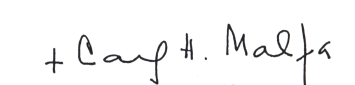 + Carl H. Malfa